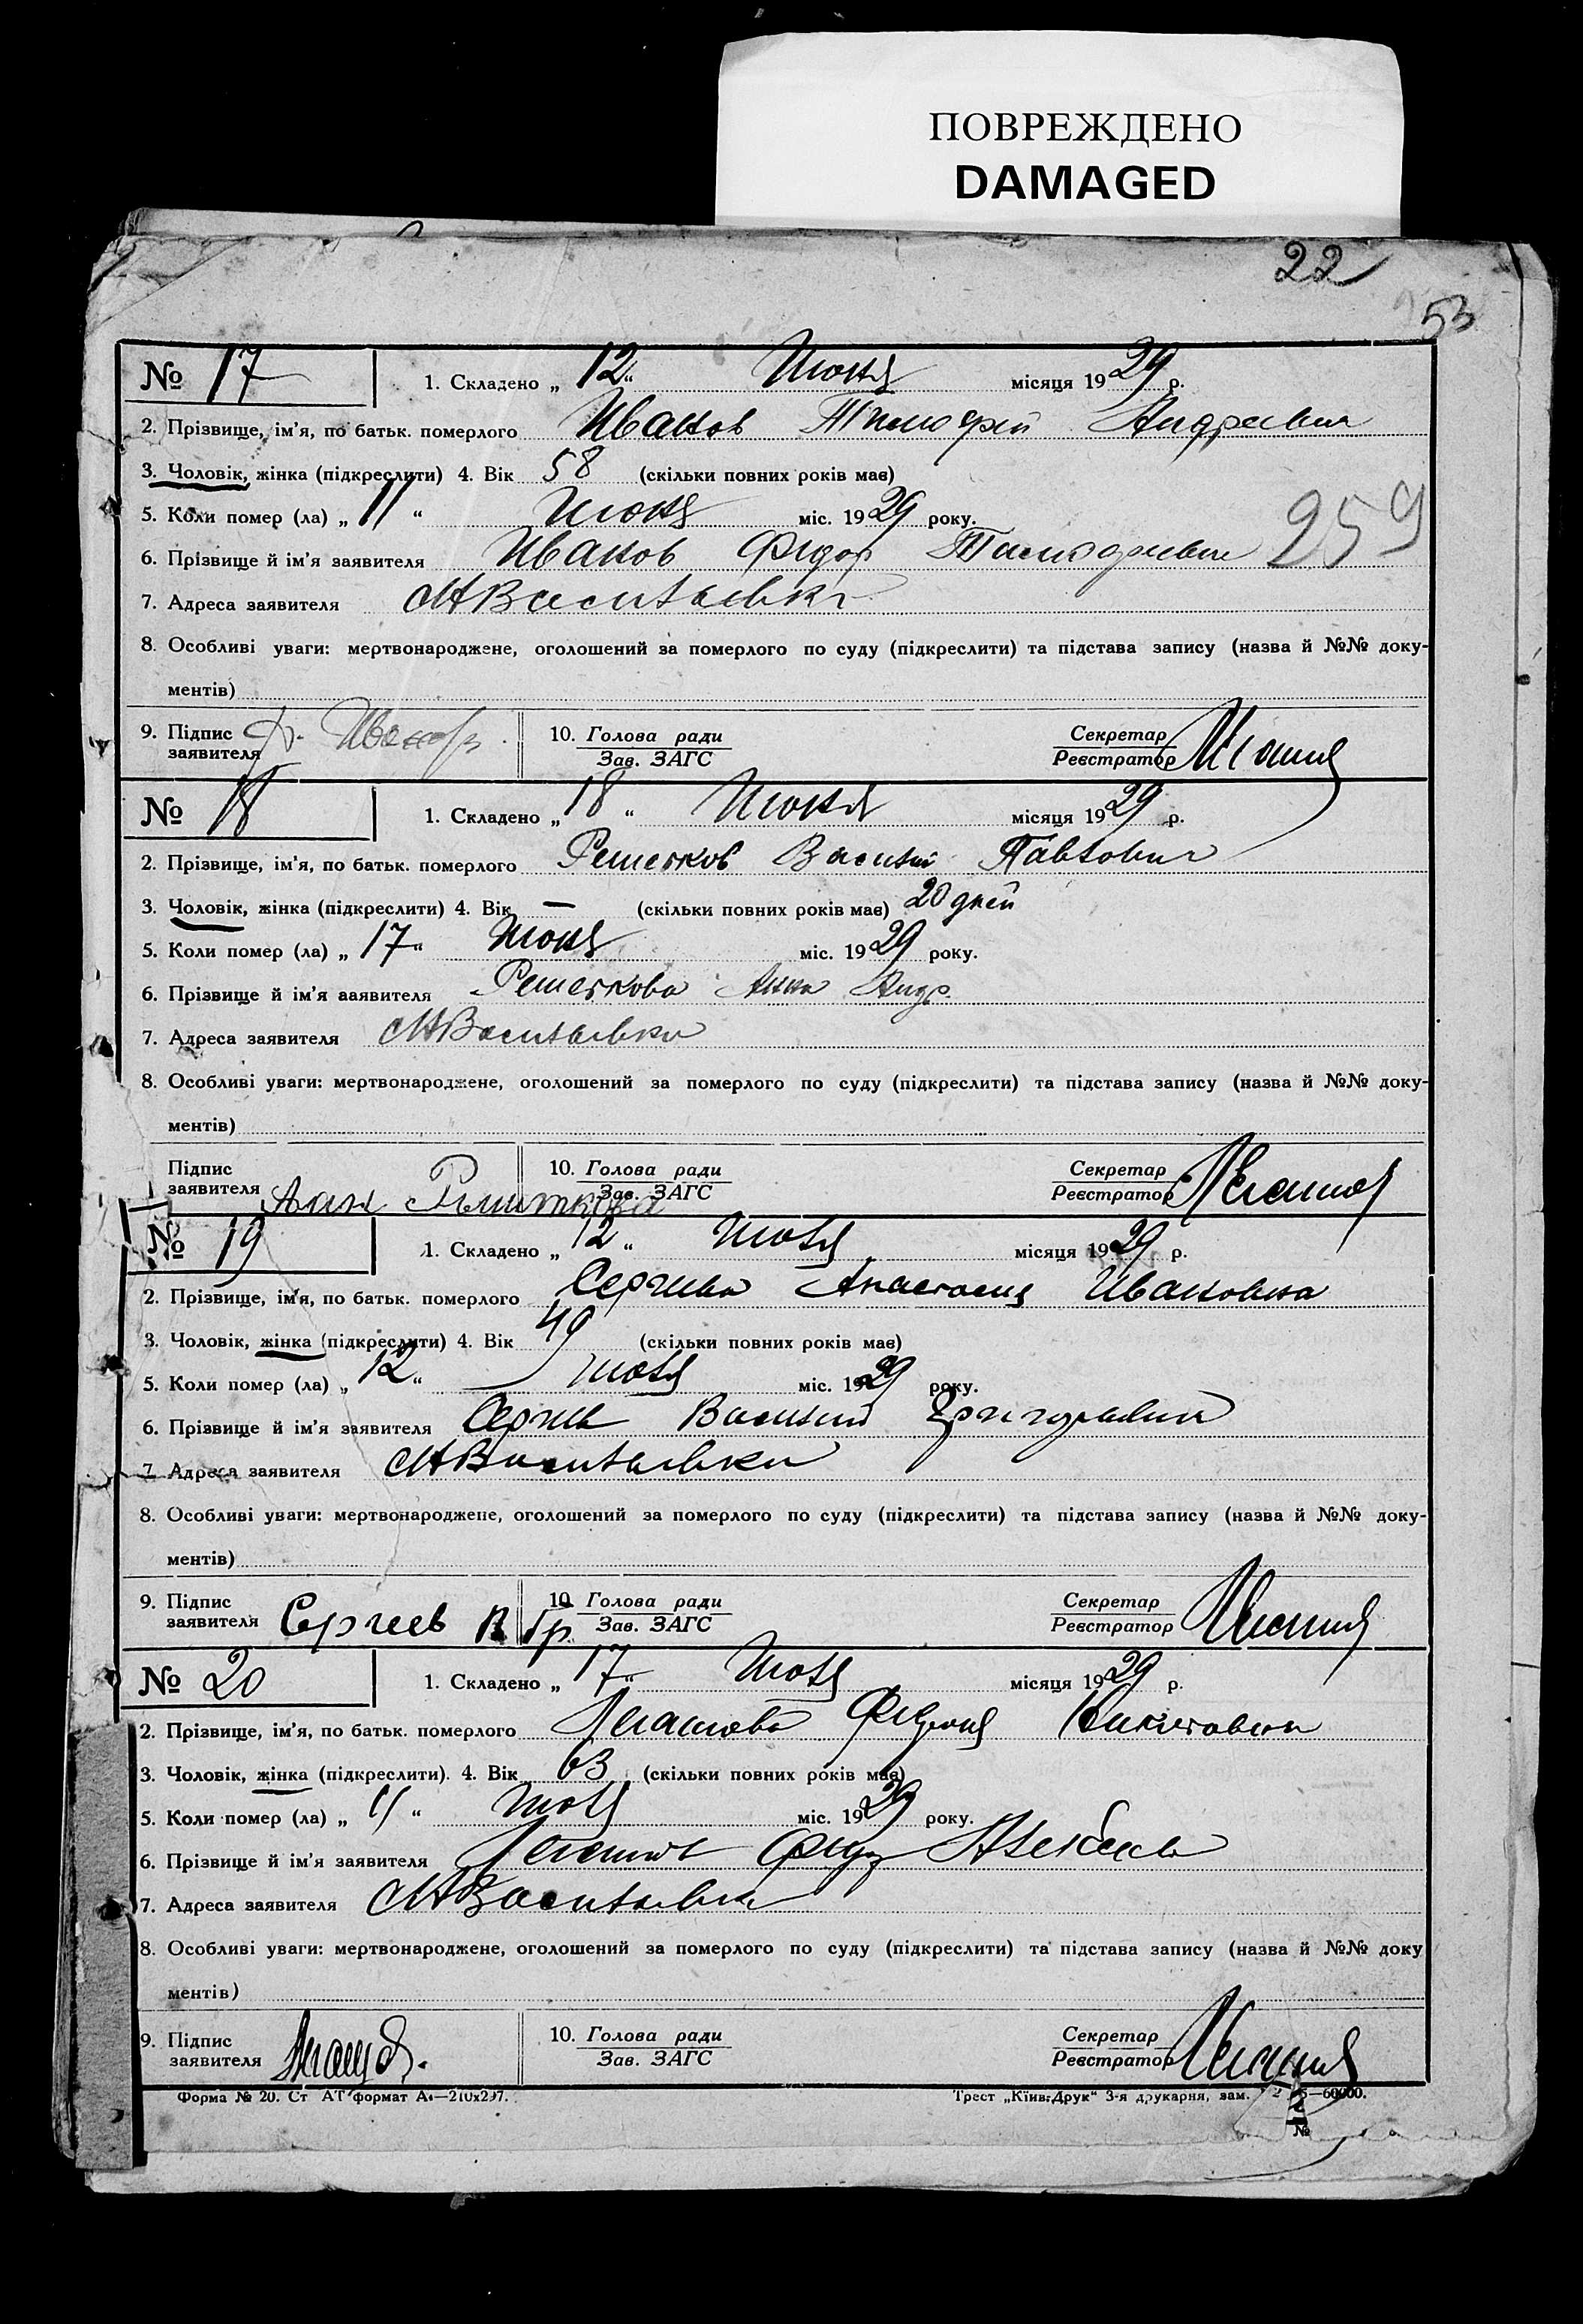 ПОВРЕЖДЕНО
DAMAGED
22
53
№ 17 1. Складено „ 12 “ Июня місяця 1929 р.
2. Прізвище, ім'я, по батьк. померлого Иванов Тимофей Андреевич
3. Чоловік, жінка (підкреслити) 4. Вік 58 (скільки повних років має)
5. Коли помер (ла) „ 11 “ Июня міс. 1929 року.
6. Прізвище й ім'я заявителя Иванов Федор Тимофеевич 259
7. Адреса заявителя
8. Особливі уваги: мертвонароджене, оголошений за померлого по суду (підкреслити) та підстава запису (назва й №№ доку-
ментів)
9. Підпис заявителя Ф. Иванов 10. Голова ради Зав. ЗАГС Секретар Реєстратор
№ 18 1. Складено „ 18 “ Июня місяця 1929 р.
2. Прізвище, ім'я, по батьк. померлого Решетков Василий Павлович
3. Чоловік, жінка (підкреслити) 4. Вік — (скільки повних років має) 20 дней
5. Коли помер (ла) „ 17 “ Июня міс. 1929 року.
6. Прізвище й ім'я ааявителя Решеткова Анна Андр.
7. Адреса заявителя
8. Особливі уваги: мертвонароджене, оголошений за померлого по суду (підкреслити) та підстава запису (назва й №№ доку-
ментів)
Підпис заявителя 10. Голова ради Зав. ЗАГС Секретар Реєстратор
№ 19 1. Складено „ 12 “ Июля місяця 1929 р.
2. Прізвище, ім'я, по батьк. померлого Сергиева Анастасия Ивановна
3. Чоловік, жінка (підкреслити) 4. Вік 49 (скільки повних років має)
5. Коли помер (ла) „ 12 “ Июля міс. 1929 року.
6. Прізвище й ім'я заявителя Сергиев Василий Григорьевич
7. Адреса заявителя
8. Особливі уваги: мертвонароджене, оголошений за померлого по суду (підкреслити) та підстава запису (назва й №№ доку-
ментів)
9. Підпис заявителя Сергиев В Гр. 10 Голова ради Зав. ЗАГС Секретар Реєстратор
№ 20 1. Складено „ 17 “ Июля місяця 1929 р.
2. Прізвище, ім'я, по батьк. померлого Никитовна
3. Чоловік, жінка (підкреслити). 4. Вік 63 (скільки повних років має)
5. Коли помер (ла) „ 11 “ Июля міс. 1929 року.
6. Прізвище й ім'я заявителя
7. Адреса заявителя
8. Особливі уваги: мертвонароджене, оголошений за померлого по суду (підкреслити) та підстава запису (назва й №№ доку
ментів)
9. Підпис заявителя 10. Голова ради Зав. ЗАГС Секретар Реєстратор
Форма № 20. Ст АТ формат А₄—210х297. Трест „Київ-Друк“ 3-я друкарня, зам. —60000.
№